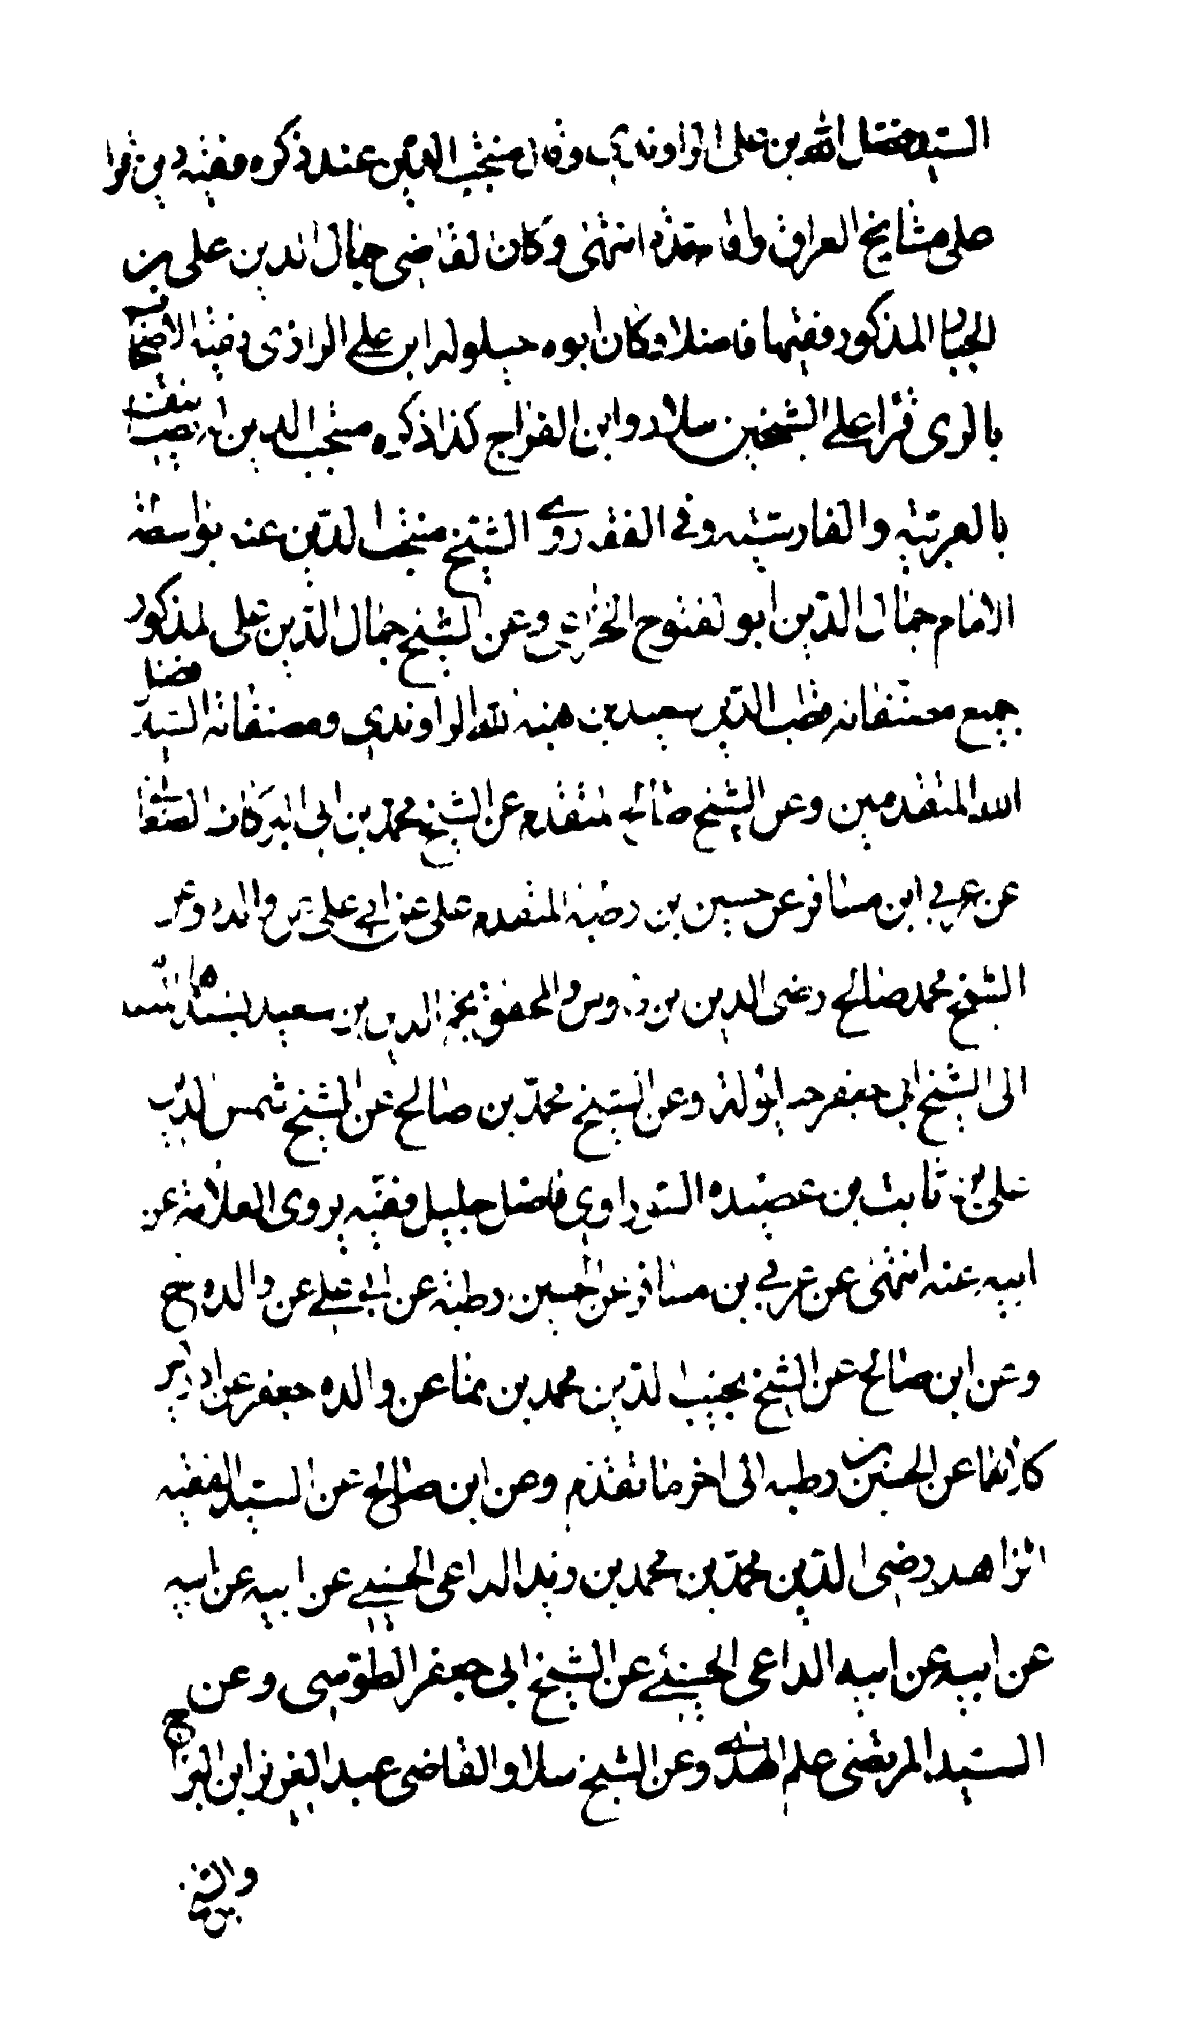 السيد فضل الله بن علي الراوندي وقال منتجب الدين عند ذكره فقيه دين قرا
على مشايخ العراق وافا متقدم انتهى وكان القاضي جمال الدين علي بن
الجبار المذكور فقيها فاضلا وكان ابوه ابن علي الرازي فقيه الاصحاب
بالري قرأ على الشيخين سلار وابن البراج كذا ذكره منتجب الدين له تصانيف
بالعربية والفارسيته وفي الفقه روى الشيخ منتجب الدين عنه بواسطة
الامام جمال الدين ابو الفتوح الخزاعي وعن الشيخ جمال الدين علي المذكور
جميع مصنفاته قطب الدين سعيد بن هبة الله الراوندي ومصنفاته السيد فضل
الله المتقدمين وعن الشيخ صالح متقدم عن الشيخ محمد بن ابي البركات الصنعا
عن عربي ابن مسافر عن حسين بن رطبه المتقدم على عن ابي علي عن والده وعن
الشيخ محمد صالح رضي الدين بن وس والمحقق نجم الدين بن سعيد
الى الشيخ ابي جعفر وعن الشيخ محمد بن صالح عن الشيخ شمس الدين
علي بن ثابت بن عصيده السوراوي فاضل جليل فقيه يروى العلامة عن
ابيه عنه انتهى عن عربي بن مسافر عن الحسين رطبه عن ابي علي عن والده ح
وعن ابن صالح عن الشيخ نجيب الدين محمد بن نما عن والده جعفر عن ادريس
كلاهما عن الحسين بن رطبه الى اخر ما تقدم وعن ابن صالح عن السيد الفقيه
الزاهد رضي الدين محمد بن محمد بن زيد الداعي الحسيني عن ابيه عن ابيه
عن ابيه عن ابيه الداعي الحسيني عن الشيخ ابي جعفر الطوسي وعن
السيد المرتضى علم الهدى وعن الشيخ سلار والقاضي عبد العزيز ابن البراج
والشيخ